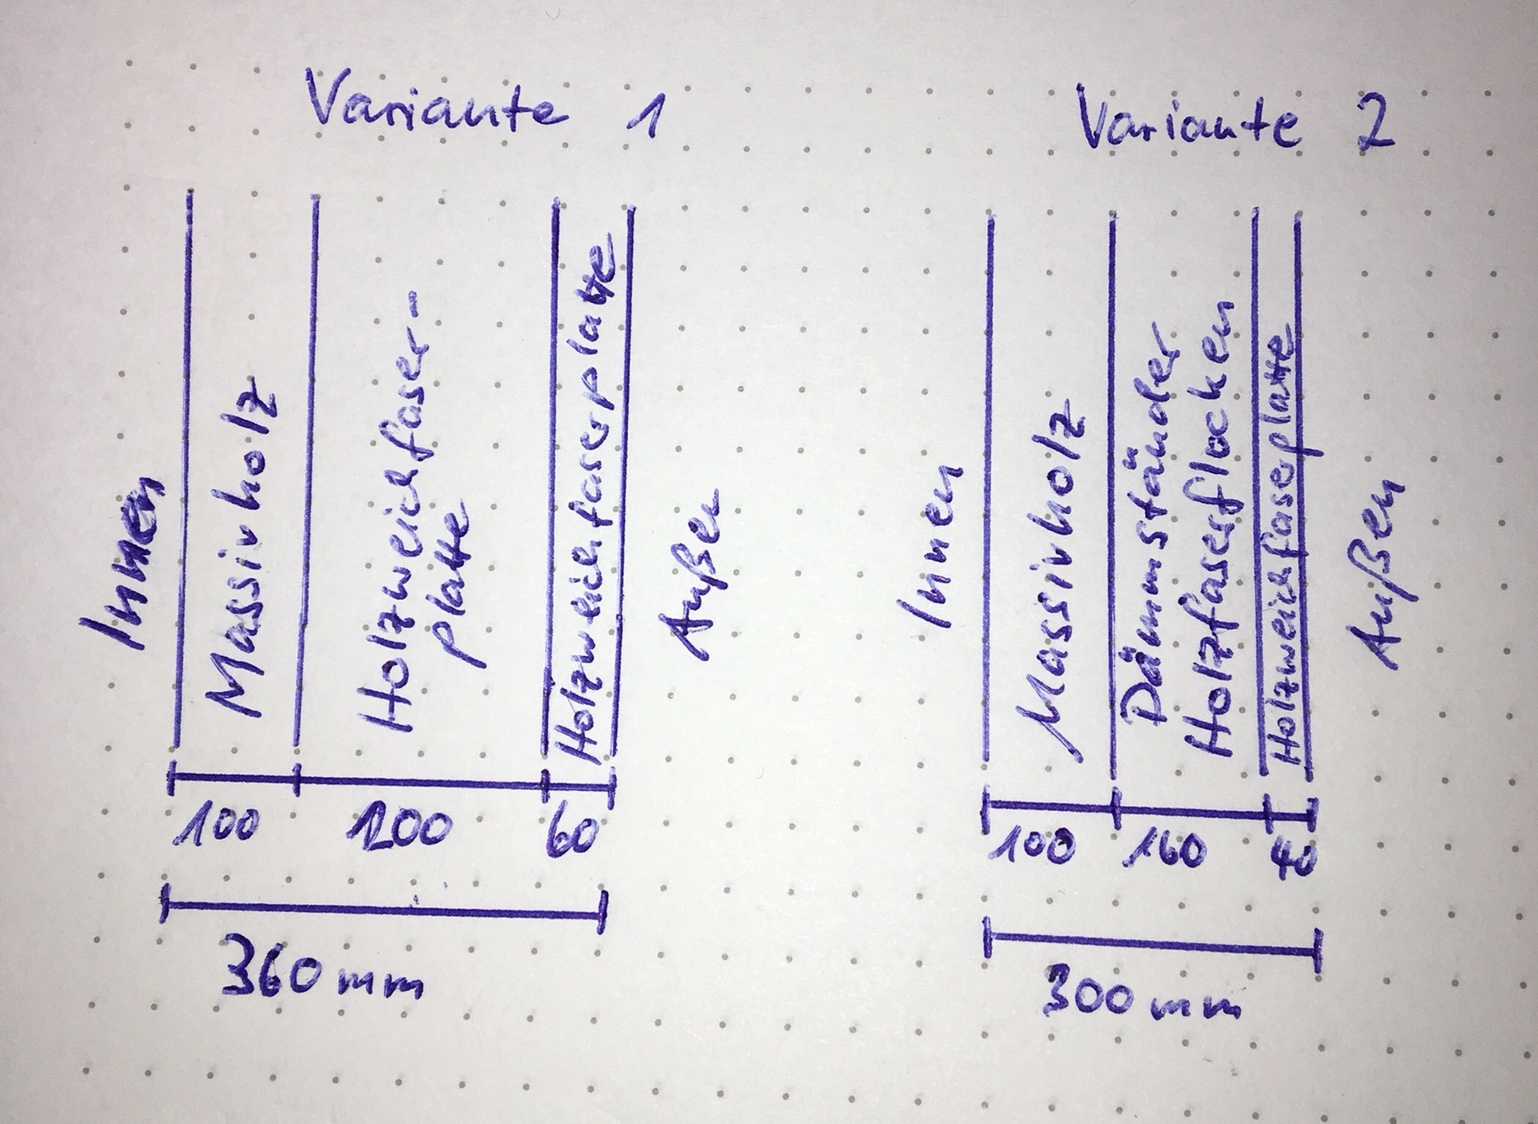 Variante 1
Innen
Massivholz
Holzweichfaser-
platte
Holzweichfaserplatte
Außen
100
200
60
360 mm
Variante 2
Innen
Massivholz
Dämmständer
Holzfaserflocken
Holzweichfaserplatte
Außen
100
160
40
300 mm